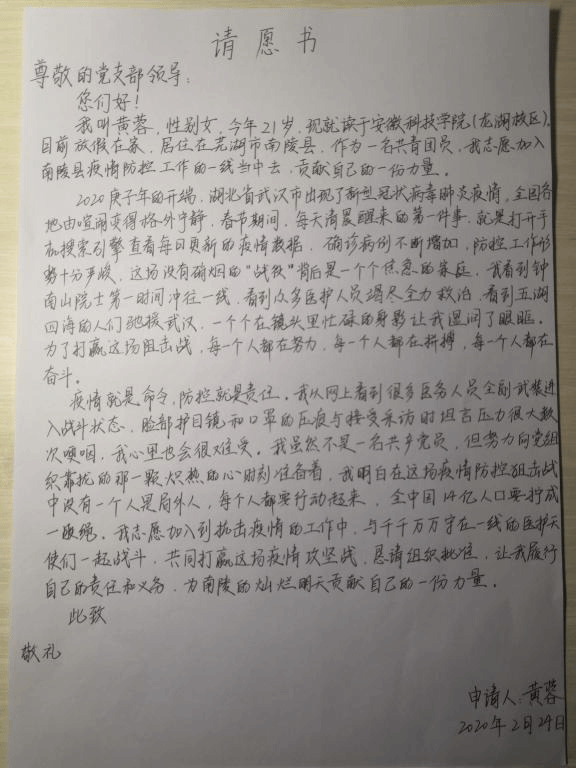 请愿书
尊敬的党支部领导：
您们好！
我叫黄蓉，性别女，今年21岁，现就读于安徽科技学院（龙湖校区），
目前放假在家，居住在芜湖市南陵县，作为一名共青团员，我志愿加入
南陵县疫情防控工作的一线当中去，贡献自己的一份力量。
2020庚子年的开端，湖北省武汉市出现了新型冠状病毒肺炎疫情，全国各
地由喧闹变得格外宁静，春节期间，每天清晨醒来的第一件事，就是打开手
机搜索引擎查看每日更新的疫情数据，确诊病例不断增加，防控工作形
势十分严峻，这场没有硝烟的“战役”背后是一个个焦急的家庭，我看到钟
南山院士第一时间冲往一线，看到众多医护人员竭尽全力救治，看到五湖
四海的人们驰援武汉，一个个在镜头里忙碌的身影让我湿润了眼眶。
为了打赢这场阻击战，每一个人都在努力，每一个人都在拼搏，每一个人都在
奋斗。
疫情就是命令，防控就是责任。我从网上看到很多医务人员全副武装进
入战斗状态，脸部护目镜和口罩的压痕与接受采访时坦言压力很大数
次哽咽，我心里也会很难受。我虽然不是一名共产党员，但努力向党组
织靠拢的那一颗炽热的心时刻准备着，我明白在这场疫情防控狙击战
中没有一个人是局外人，每个人都要行动起来，全中国14亿人口要拧成
一股绳。我志愿加入到抗击疫情的工作中，与千千万万守在一线的医护天
使们一起战斗，共同打赢这场疫情攻坚战，恳请组织批准，让我履行
自己的责任和义务，为南陵的灿烂明天贡献自己的一份力量。
此致
敬礼
申请人：黄蓉
2020年2月29日